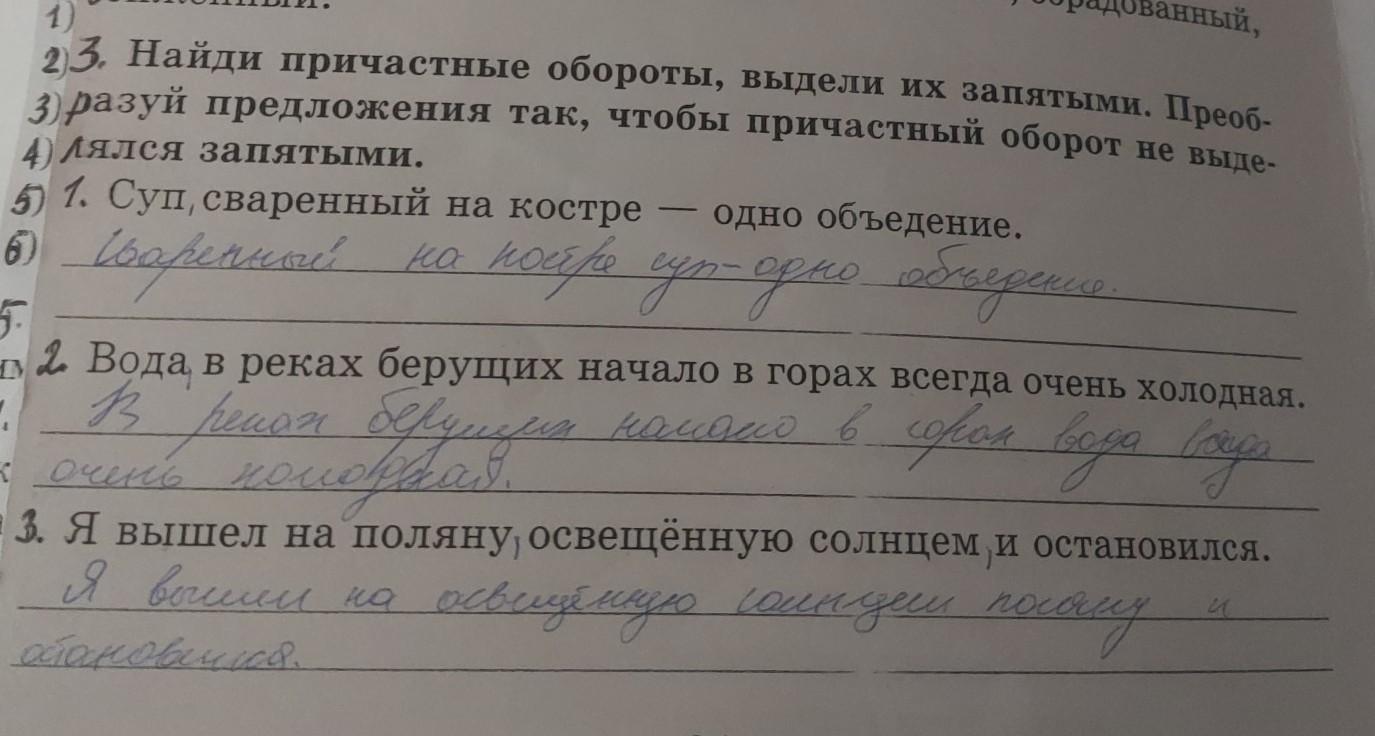 1)
обрадованный,
2) 3. Найди причастные обороты, выдели их запятыми. Преоб-
3) разуй предложения так, чтобы причастный оборот не выде-
4) лялся запятыми.
5) 1. Суп, сваренный на костре — одно объедение.
6) Сваренный на костре суп - одно объедение.
5.
2. Вода, в реках берущих начало в горах всегда очень холодная.
В реках берущих начало в горах вода всегда
очень холодная.
3. Я вышел на поляну, освещённую солнцем, и остановился.
Я вышел на освещённую солнцем поляну и
остановился.